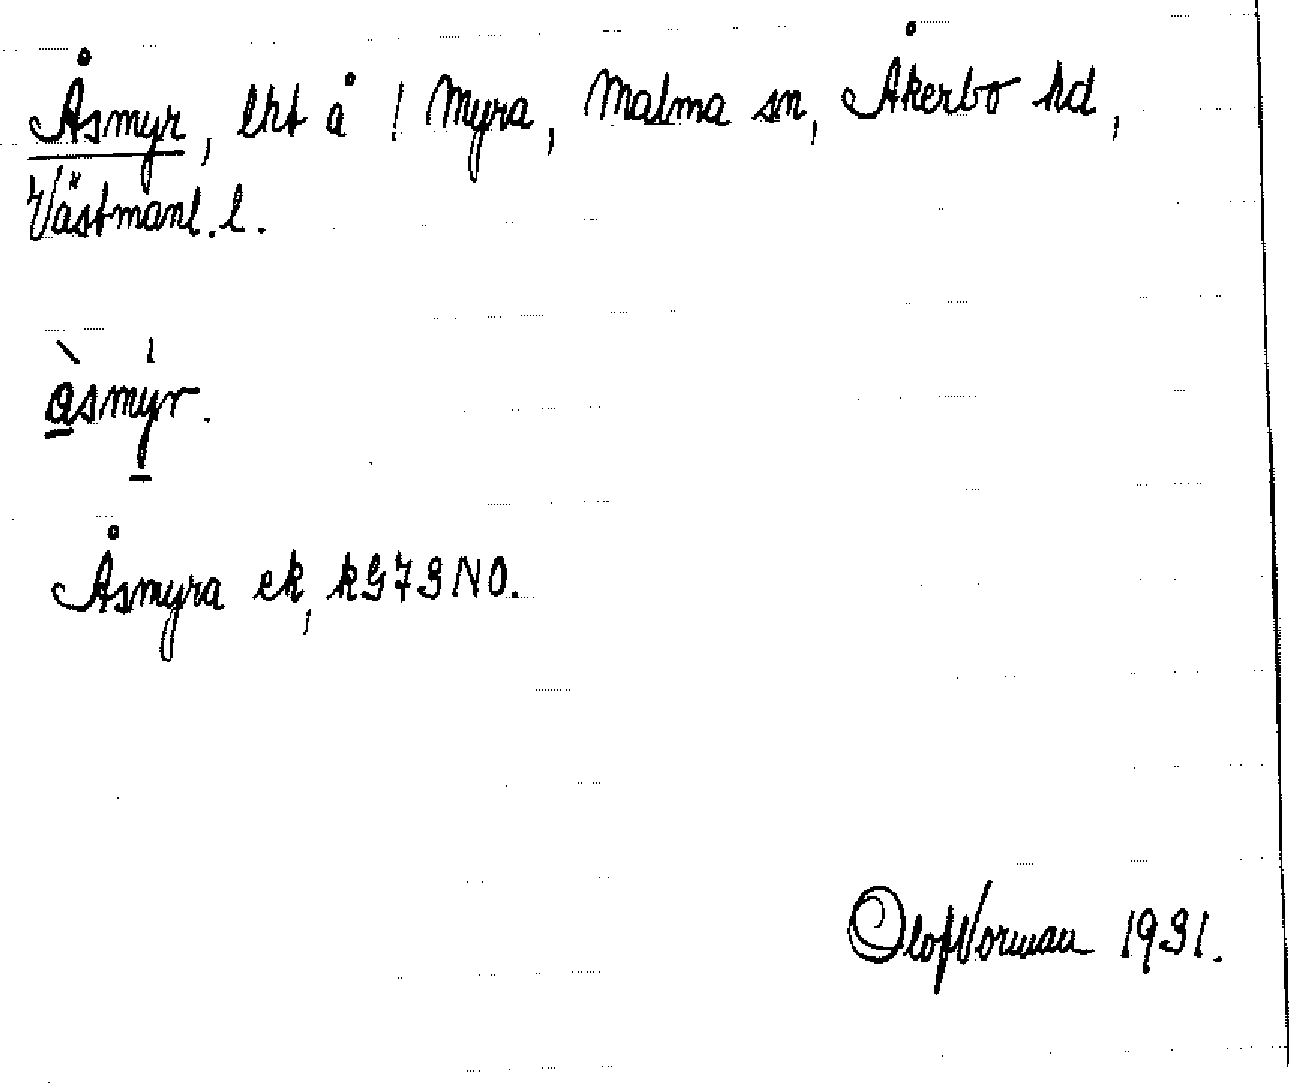 Åsmyr, lht å / Myra, Malma sn, Åkerbo hd,
Västmanl. l.
àsmýr.
Åsmyra ek, k973NO.
Olof Norman 1931.